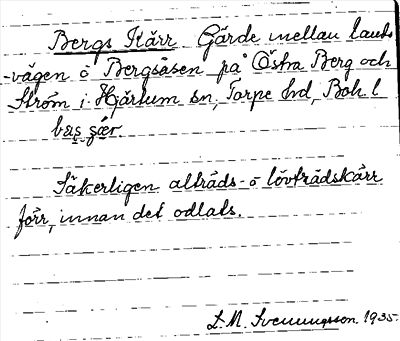 Bergs Kärr Gärde mellan lands
-vägen o Bergsåsen på Östra Berg och
Ström i Hjärtum sn, Torpe hd, Boh l
bæs çær.
Säkerligen alträds- o lövträdskärr
förr, innan det odlats.
L. M. Svenungsson. 1935.